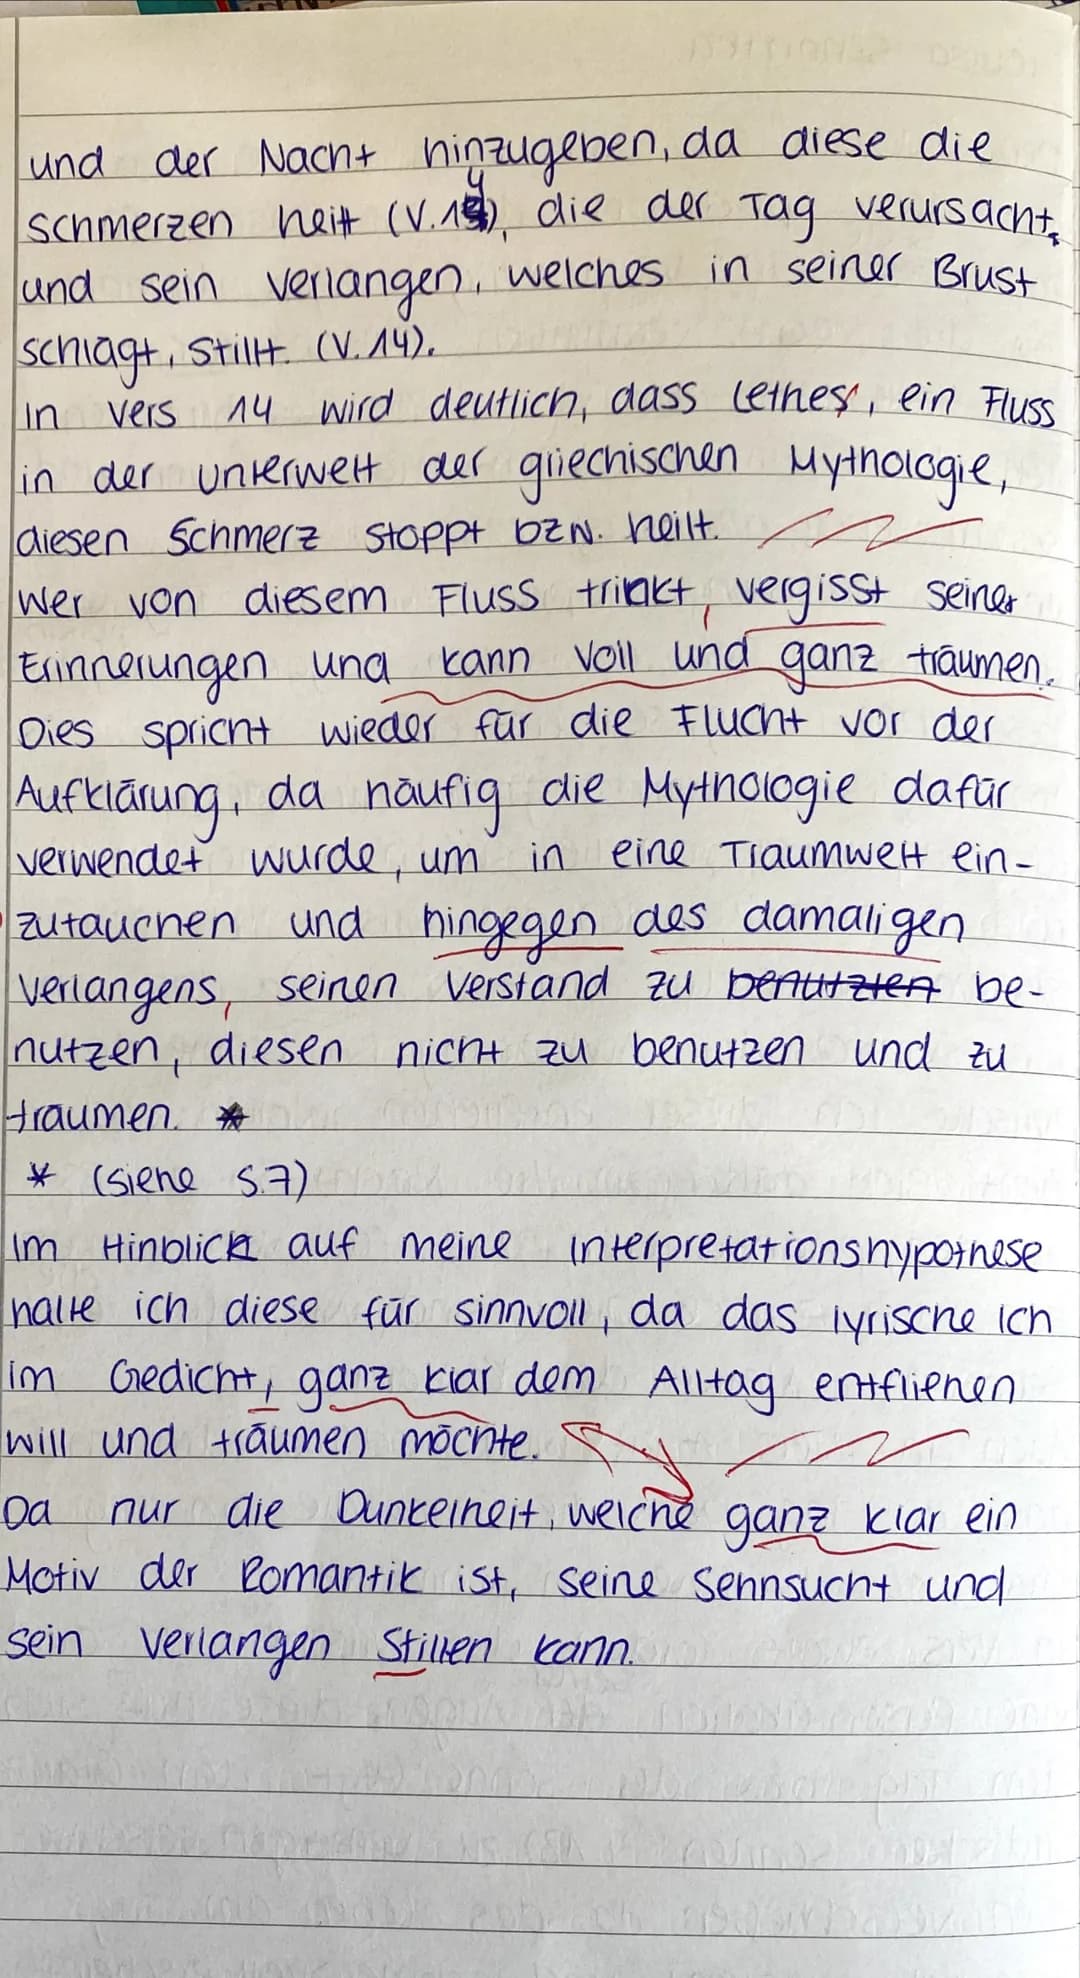 und der Nacht hinzugeben, da diese die
schmerzen heilt (V.14), die der Tag verursacht,
und sein verlangen, welches in seiner Brust
schlägt, stillt. (V.14).
In Vers 14 wird deutlich, dass Lethes, ein Fluss
in der Unterwelt der griechischen Mythologie,
diesen Schmerz stoppt bzw. heilt.
Wer von diesem Fluss trinkt, vergisst seine
Erinnerungen und kann voll und ganz träumen.
Dies spricht wieder für die Flucht vor der
Aufklärung, da häufig die Mythologie dafür
verwendet wurde, um in eine Traumwelt ein-
zutauchen und hingegen des damaligen
Verlangens, seinen Verstand zu benutzten be-
nutzen, diesen nicht zu benutzen und zu
träumen. *
* (siehe S.7)
Im Hinblick auf meine Interpretationshypothese
halte ich diese für sinnvoll, da das lyrische Ich
im Gedicht, ganz klar dem Alltag entfliehen
will und träumen möchte.
Da nur die Dunkelheit, welche ganz klar ein
Motiv der Romantik ist, seine Sehnsucht und
sein Verlangen Stillen kann.